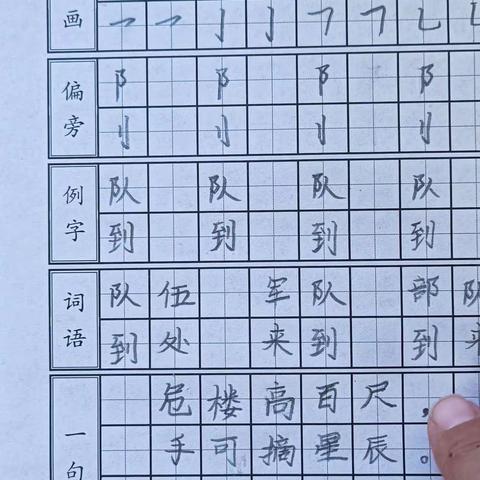 画 ㇀ ㇀ 亅 亅 ㇆ ㇆ ㇄
偏旁 阝 阝 阝 阝
刂 刂 刂 刂
例字 队 队 队 队
到 到 到 到
词语 队伍 军队 部队
到处 来到 到来
一句 危楼高百尺，
手可摘星辰。